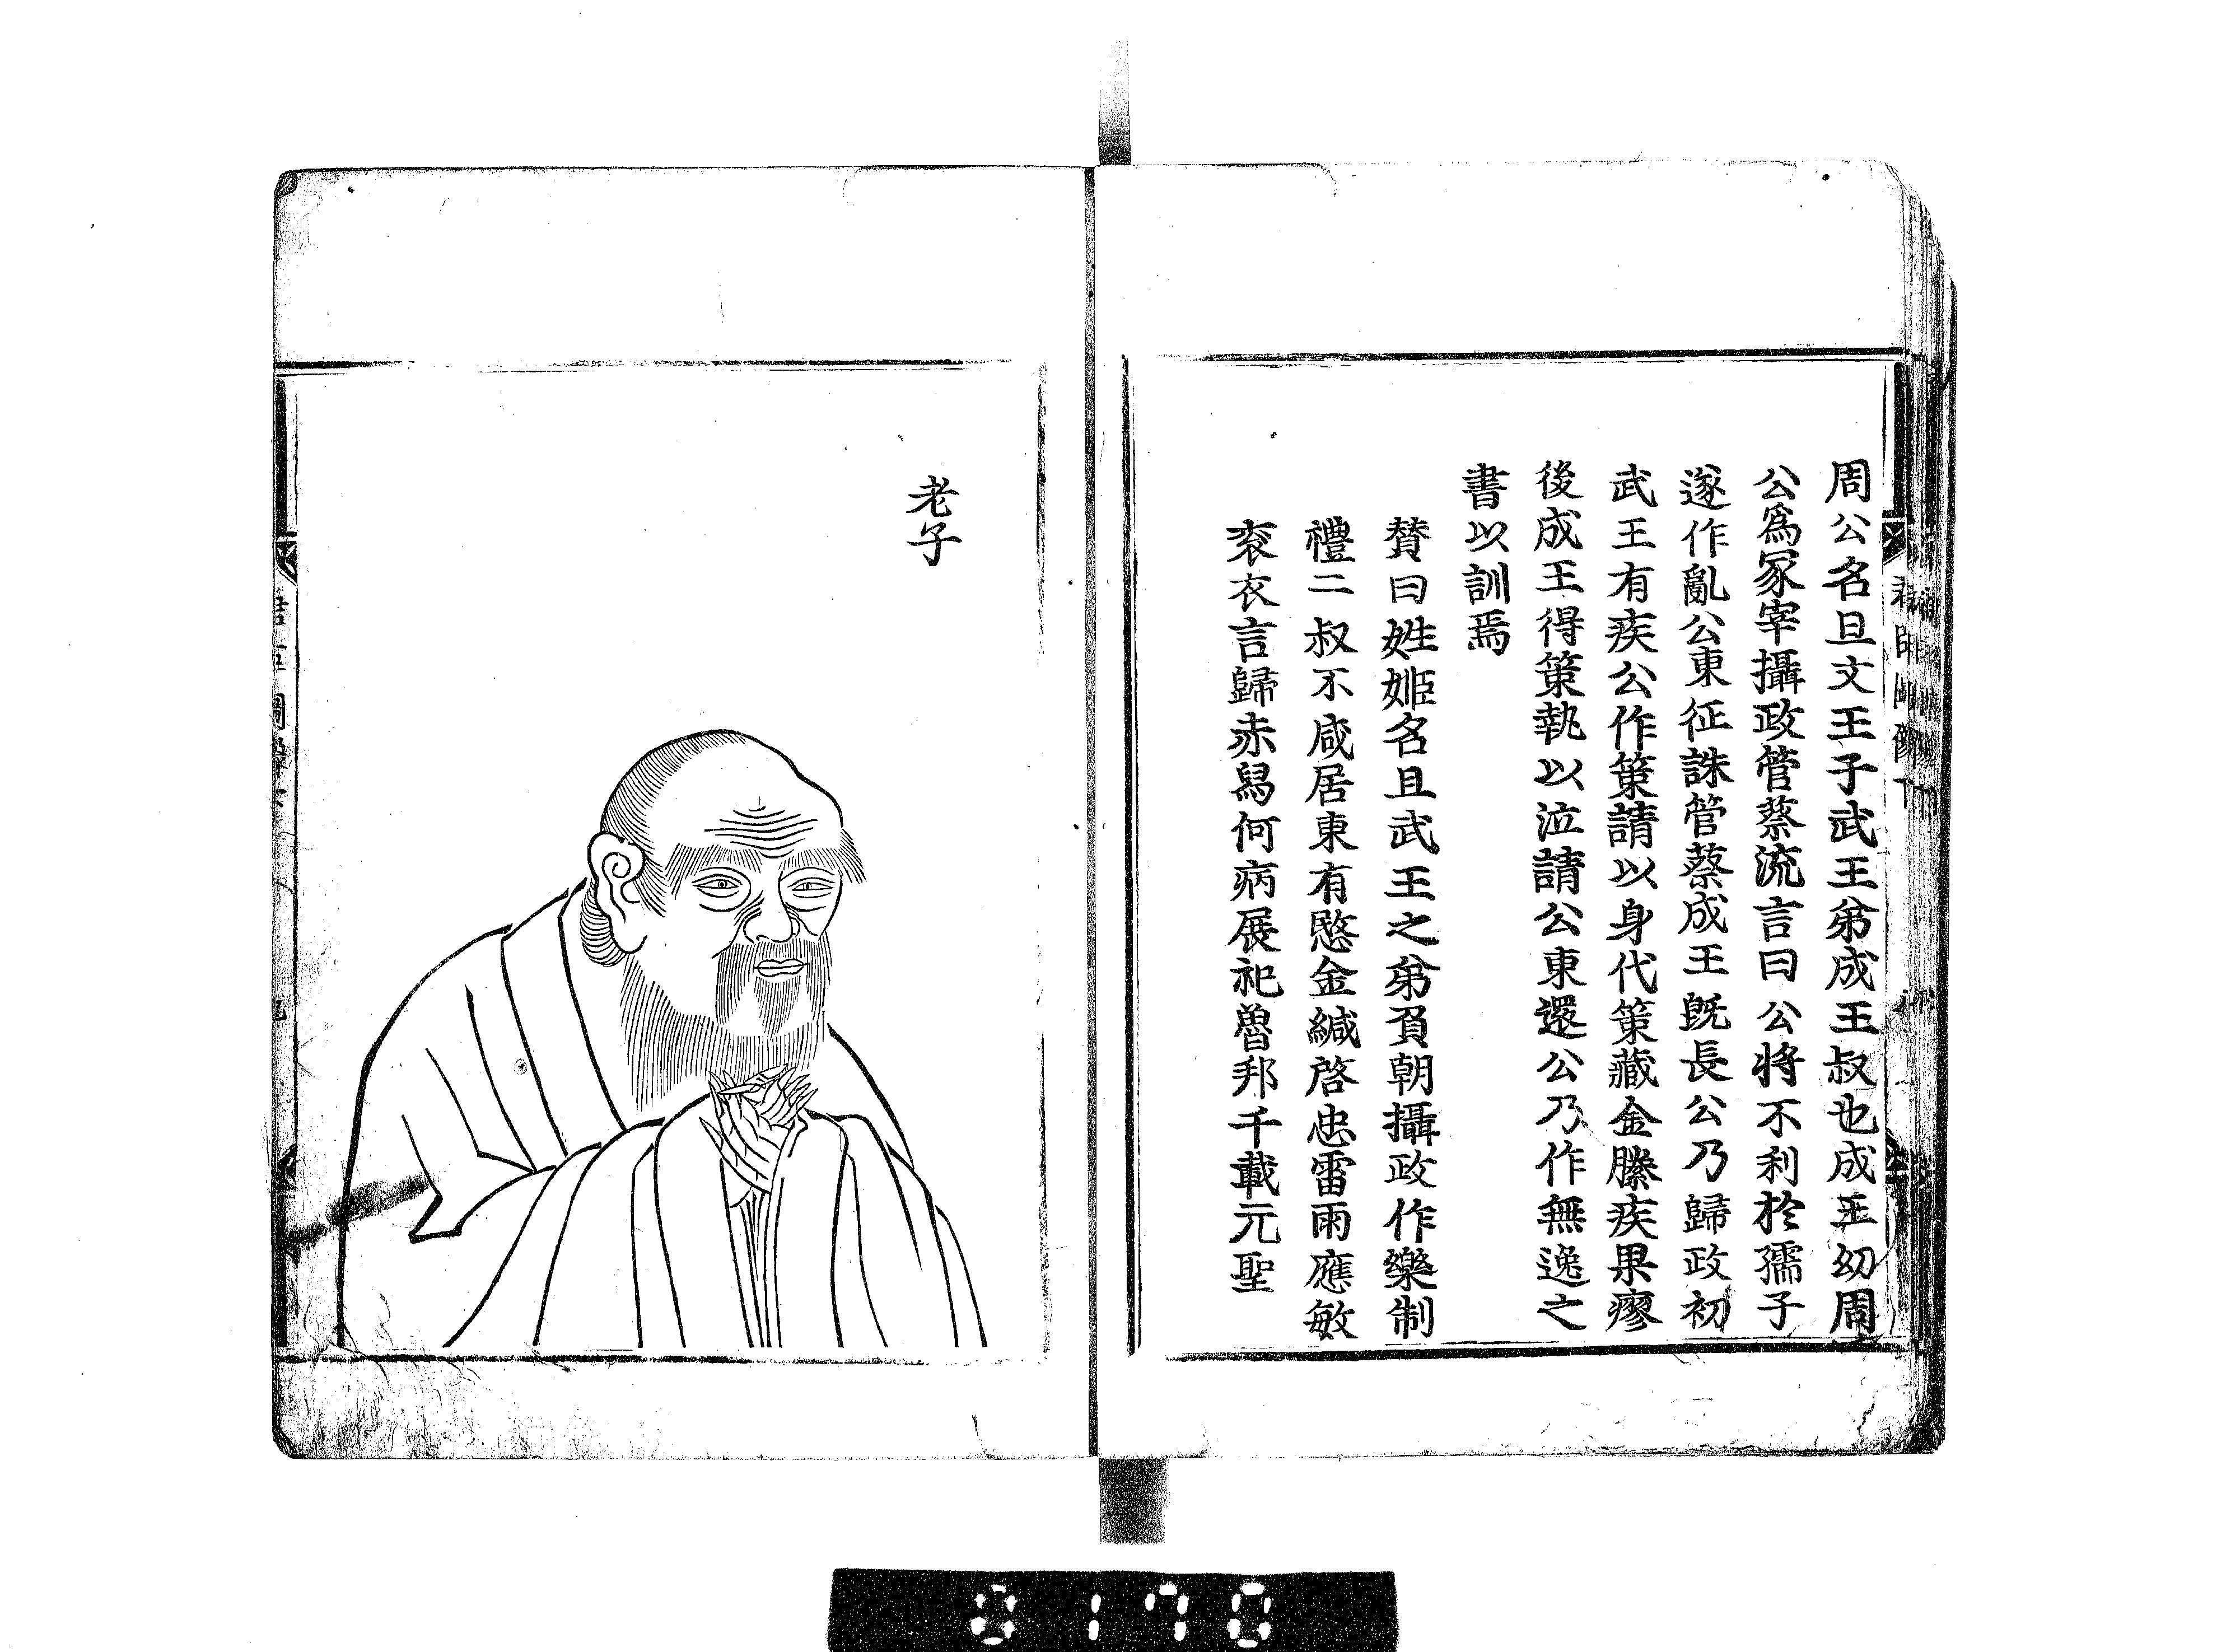 周公名旦文王子武王弟成王叔也成王幼周
公爲冢宰攝政管蔡流言曰公將不利於孺子
遂作亂公東征誅管蔡成王旣長公乃歸政初
武王有疾公作策請以身代策藏金縢疾果瘳
後成王得策執以泣請公東還公乃作無逸之
書以訓焉
賛曰姓姬名旦武王之弟負朝攝政作樂制
禮二叔不咸居東有愍金縅啓忠雷雨應敏
衮衣言歸赤舄何病展祀魯邦千載元聖
老子
0170